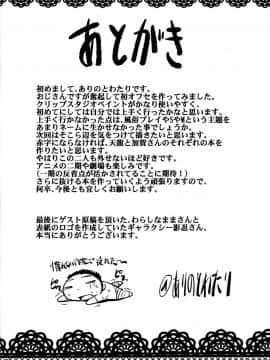 あとがき
初めまして、ありのとわたりです。
おじさんですが奮起して初オフセを作ってみました。
クリップスタジオペイントがかなり使いやすく、
初めてにしては自分では上手く行ったかなと思います。
上手く行かなかった点は、風俗プレイやSやMという主題を
あまりネームに生かせなかった事でしょうか。
次回はそこら辺を気をつけて描きたいと思います。
赤字にならなければ、天龍と加賀さんのそれぞれの本を
作りたいと思います。
やはりこの二人も外せないほど好きです。
アニメの二期や劇場も楽しみです。
（一期の反省点が活かされてることに期待！）
さらに抜ける本を作っていくよう頑張りますので、
何卒、今後とも宜しくお願いします。
最後にゲスト原稿を頂いた、わらしなままさんと
表紙のロゴを作成していたギャラクシー影忍さん、
本当にありがとうございます。
@ありのとわたり